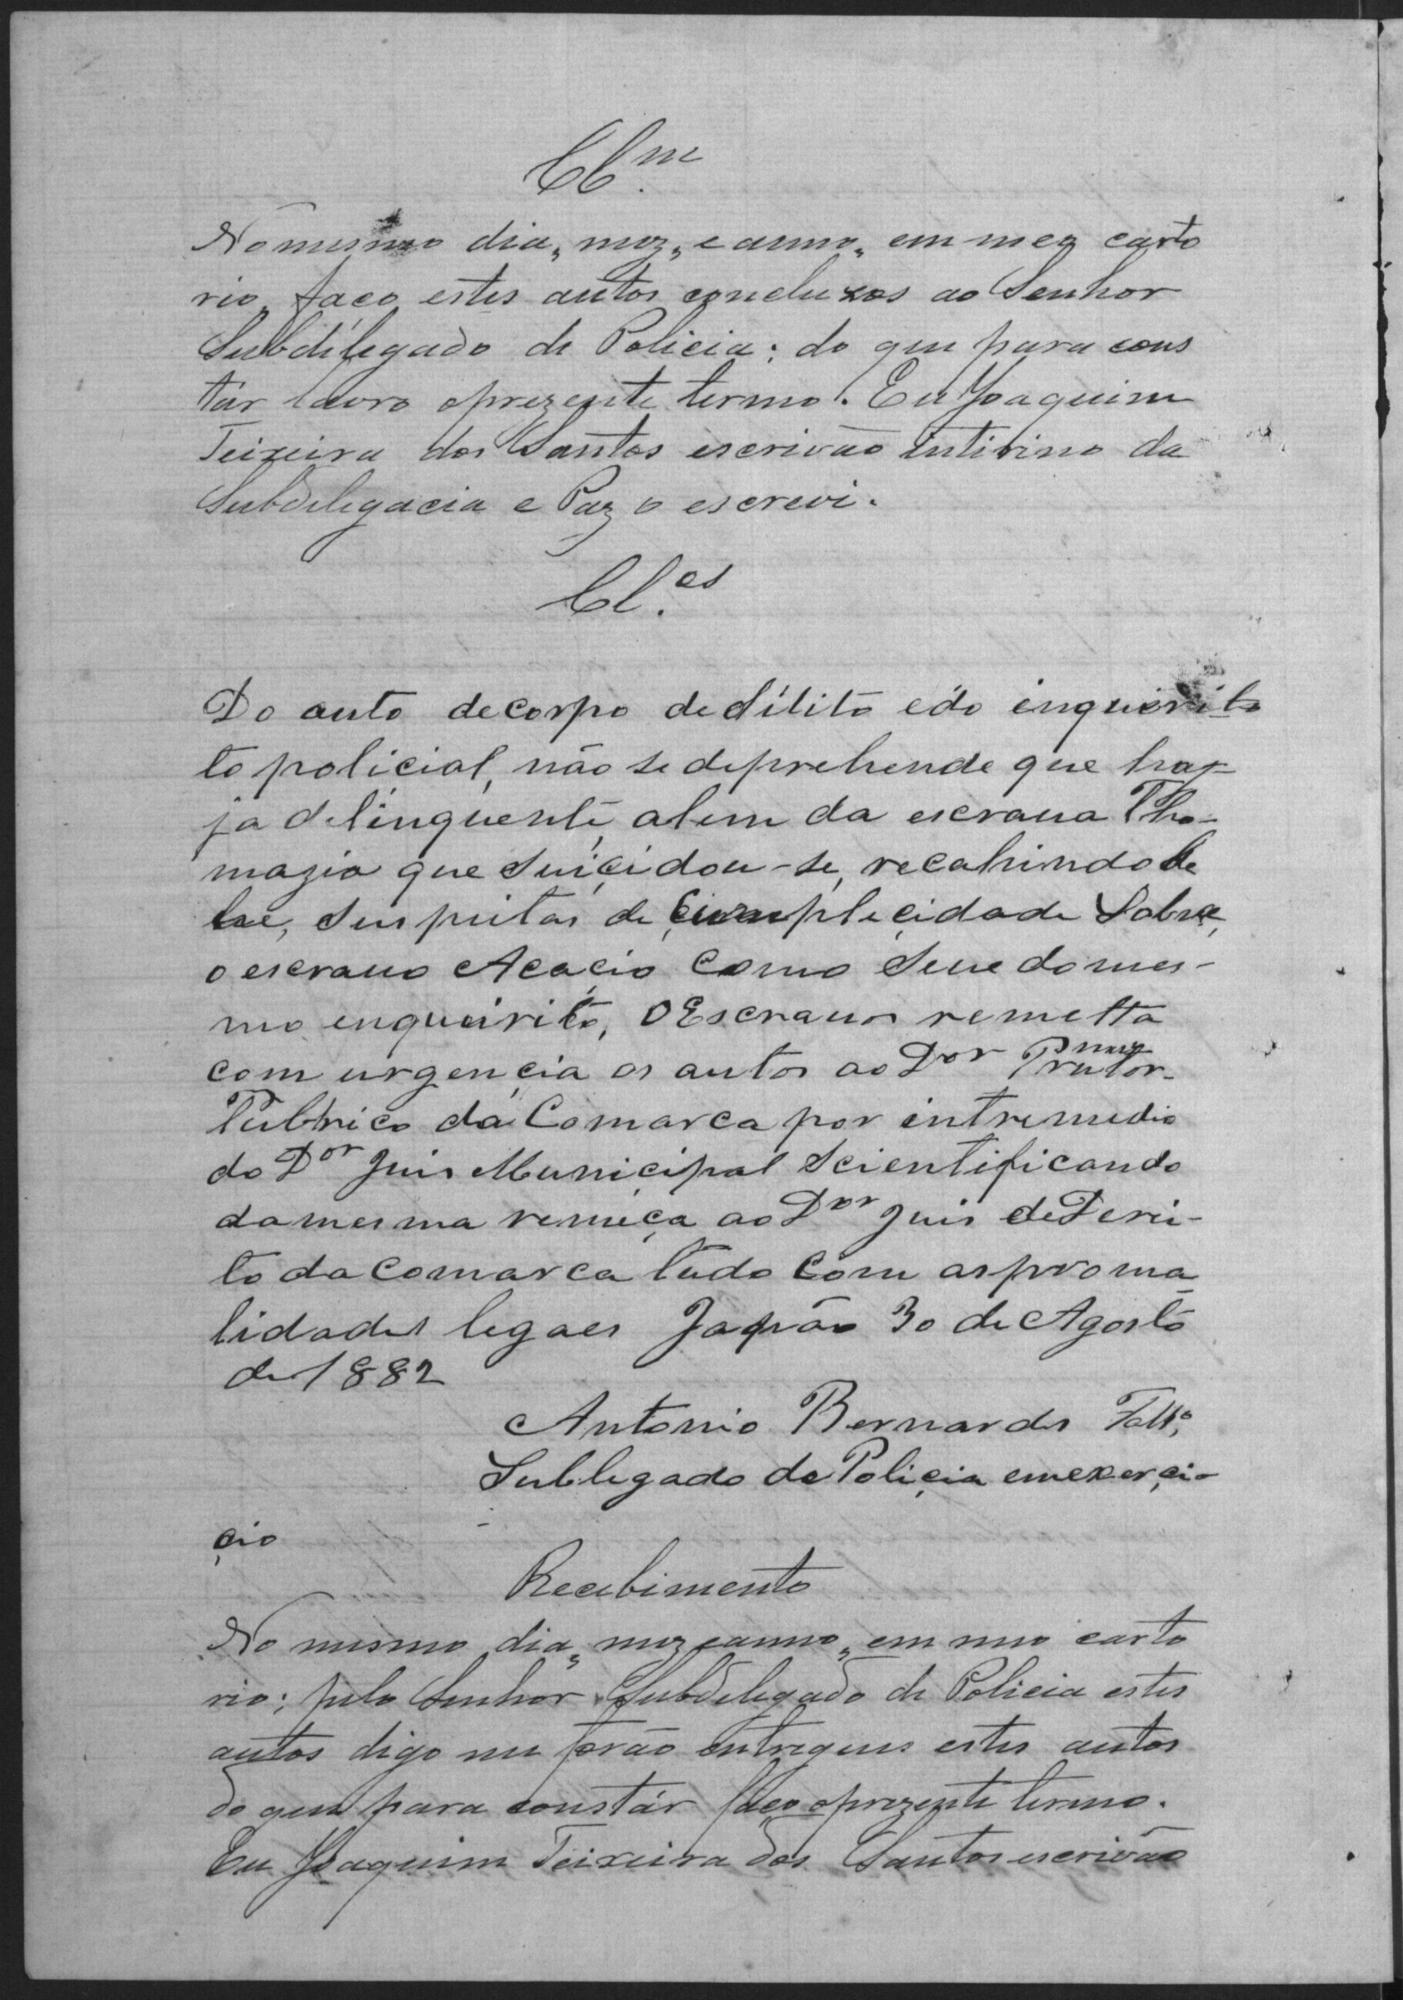 Cl.m
No mesmo dia, mez, e anno, em meo carto
rio, faco estes autos concluzos ao Senhor
Subdélegado de Policia; do que para cons
tár lavro oprezente termo. Eu Joaquim
Teixeira dos Santos escrivão intirino da
Subdelegacia e Paz o escrevi.
Cl.es
Do auto decorpo dedílito edo inquirito
to policial, não se deprehende que haj-
ja delinquente, alem da escrava Tho-
mazia que suiçidou-se, recahindo
suspeitas de cumpleçidade Sobre,
o escravo Acaçio como Seve domes-
mo enquirito, O Escravos remetta
com urgençia os autos ao Dor Prmutor-
Publico da Comarca por intremedio
do Dor Juis Municipal Scientificando
damesma remeça ao Dor Juis deDerei-
to da comarca tudo Com asproma
lidades legaes Japão 30 de Agosto
de 1882
Antonio Bernardes
Sublegado de Poliçia emexerçi-
çio
Recebimento
No mesmo dia, mez eanno, em meo carto
rio; pelo Senhor Subdelegado de Policia estes
autos digo me forão entregues estes autos
do que para constár faço oprezente termo.
Eu Joaquim Teixeira dos Santos escrivão